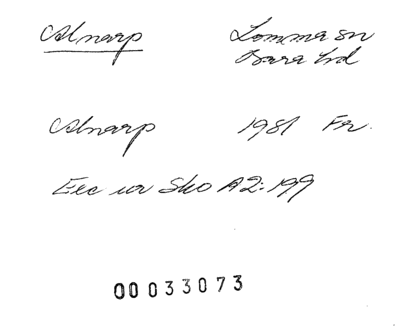 Alnarp Lomma sn
Bara hd
Alnarp 1981 Fr.
Exc ur Sko A2:199
00033073